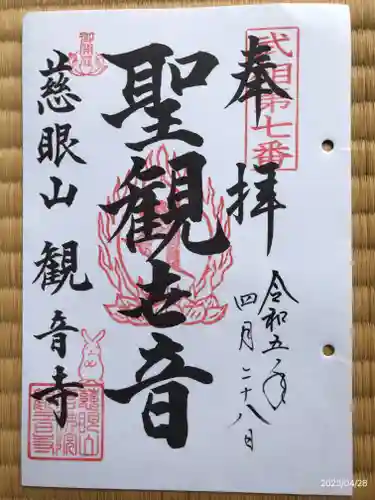 武相第七番
奉拝
令和五年
四月二十八日
聖観世音
慈眼山 観音寺
2023/04/28